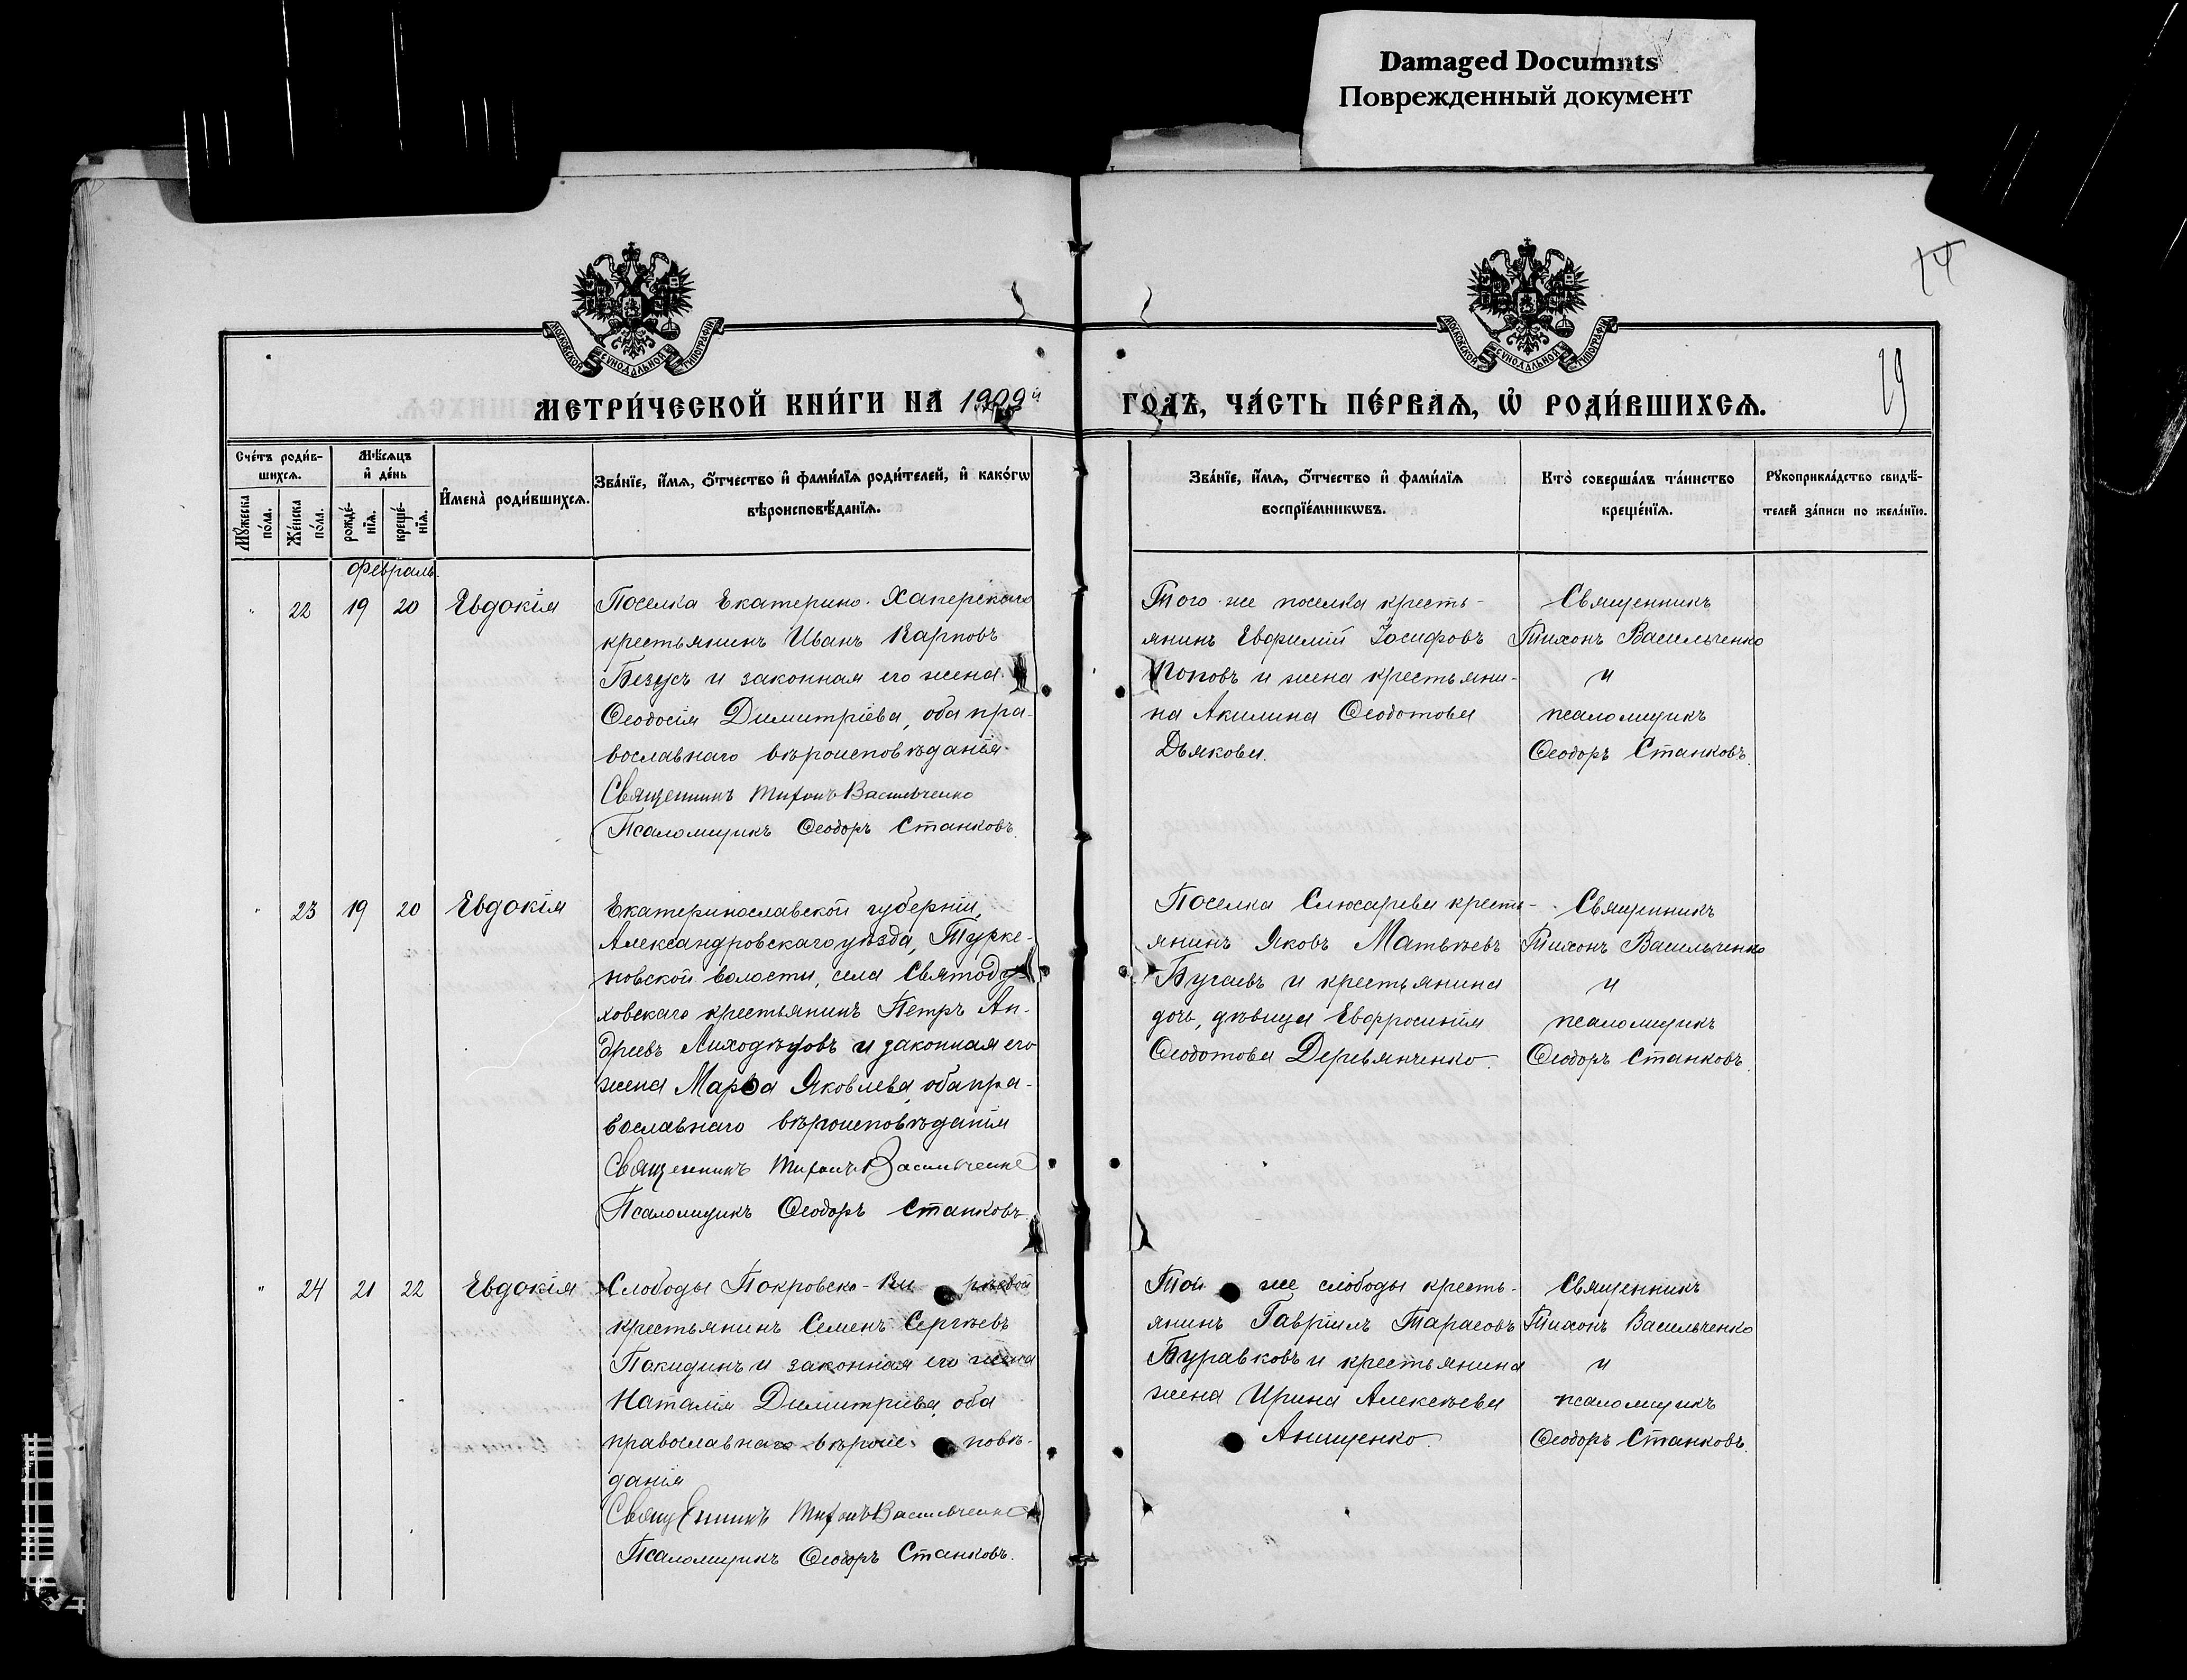 Damaged Documnts
Поврежденный документ
14
МОСКОВСКОЙ СѴНОДАЛЬНОЙ ТИПОГРАФІИ
МОСКОВСКОЙ СѴНОДАЛЬНОЙ ТИПОГРАФІИ
19
МЕТРИ́ЧЕСКОЙ КНИ́ГИ НА 1909й
ГОДЪ, ЧА́СТЬ ПЕ́РВАѦ, Ѡ҆ РОДИ́ВШИХСѦ.
Сче́тъ роди́в-
шихсѧ.
Мѣ́сѧцъ
и҆ де́нь
Мꙋ́жеска по́ла.
Же́нска по́ла.
рожде́-нїѧ.
креще́-нїѧ.
И҆мена̀ роди́вшихсѧ.
Зва́нїе, и҆́мѧ, ѻ҆́тчество и҆ фами́лїѧ роди́телей, и҆ како́гѡ
вѣроисповѣ́данїѧ.
Зва́нїе, и҆́мѧ, ѻ҆́тчество и҆ фами́лїѧ
воспрїе́мникѡвъ.
Кто̀ соверша́лъ та́инство
креще́нїѧ.
Рꙋкоприкла́дство свидѣ́-
телей за́писи по жела́нїю.
Февраль.
" 22 19 20 Евдокія
Поселка Екатерино-Хаперскаго
крестьянинъ Иванъ Карповъ
Безусъ и законная его жена
Ѳеодосія Димитріева, оба пра-
вославнаго вѣроисповѣданія.
Священникъ Тихонъ Васильченко
Псаломщикъ Ѳеодоръ Станковъ.
Того-же поселка кресть-
янинъ Евфимій Іосифовъ
Поповъ и жена крестьяни-
на Акилина Ѳеодотова
Дьякова.
Священникъ
Тихонъ Васильченко
и
псаломщикъ
Ѳеодоръ Станковъ.
" 23 19 20 Евдокія
Екатеринославской губерніи,
Александровскаго уѣзда, Турке-
новской волости, села Святоду-
ховскаго крестьянинъ Петръ Ан-
дреевъ Лиходѣдовъ и законная его
жена Марѳа Яковлева, оба пра-
вославнаго вѣроисповѣданія
Священникъ Тихонъ Васильченко
Псаломщикъ Ѳеодоръ Станковъ.
Поселка Слюсарева кресть-
янинъ Яковъ Матвѣевъ
Бугаевъ и крестьянина
дочь, дѣвица Евфросинія
Ѳеодотова Деревянченко.
Священникъ
Тихонъ Васильченко
и
псаломщикъ
Ѳеодоръ Станковъ.
" 24 21 22 Евдокія
Слободы Покровско-Ки рѣевой
крестьянинъ Семенъ Сергѣевъ
Покидинъ и законная его жена
Наталія Димитріева, оба
православнаго вѣроис повѣ-
данія
Священникъ Тихонъ Васильченко
Псаломщикъ Ѳеодоръ Станковъ.
Той же слободы кресть-
янинъ Гавріилъ Тарасовъ
Буравковъ и крестьянина
жена Ирина Алексѣева
Анищенко.
Священникъ
Тихонъ Васильченко
и
псаломщикъ
Ѳеодоръ Станковъ.